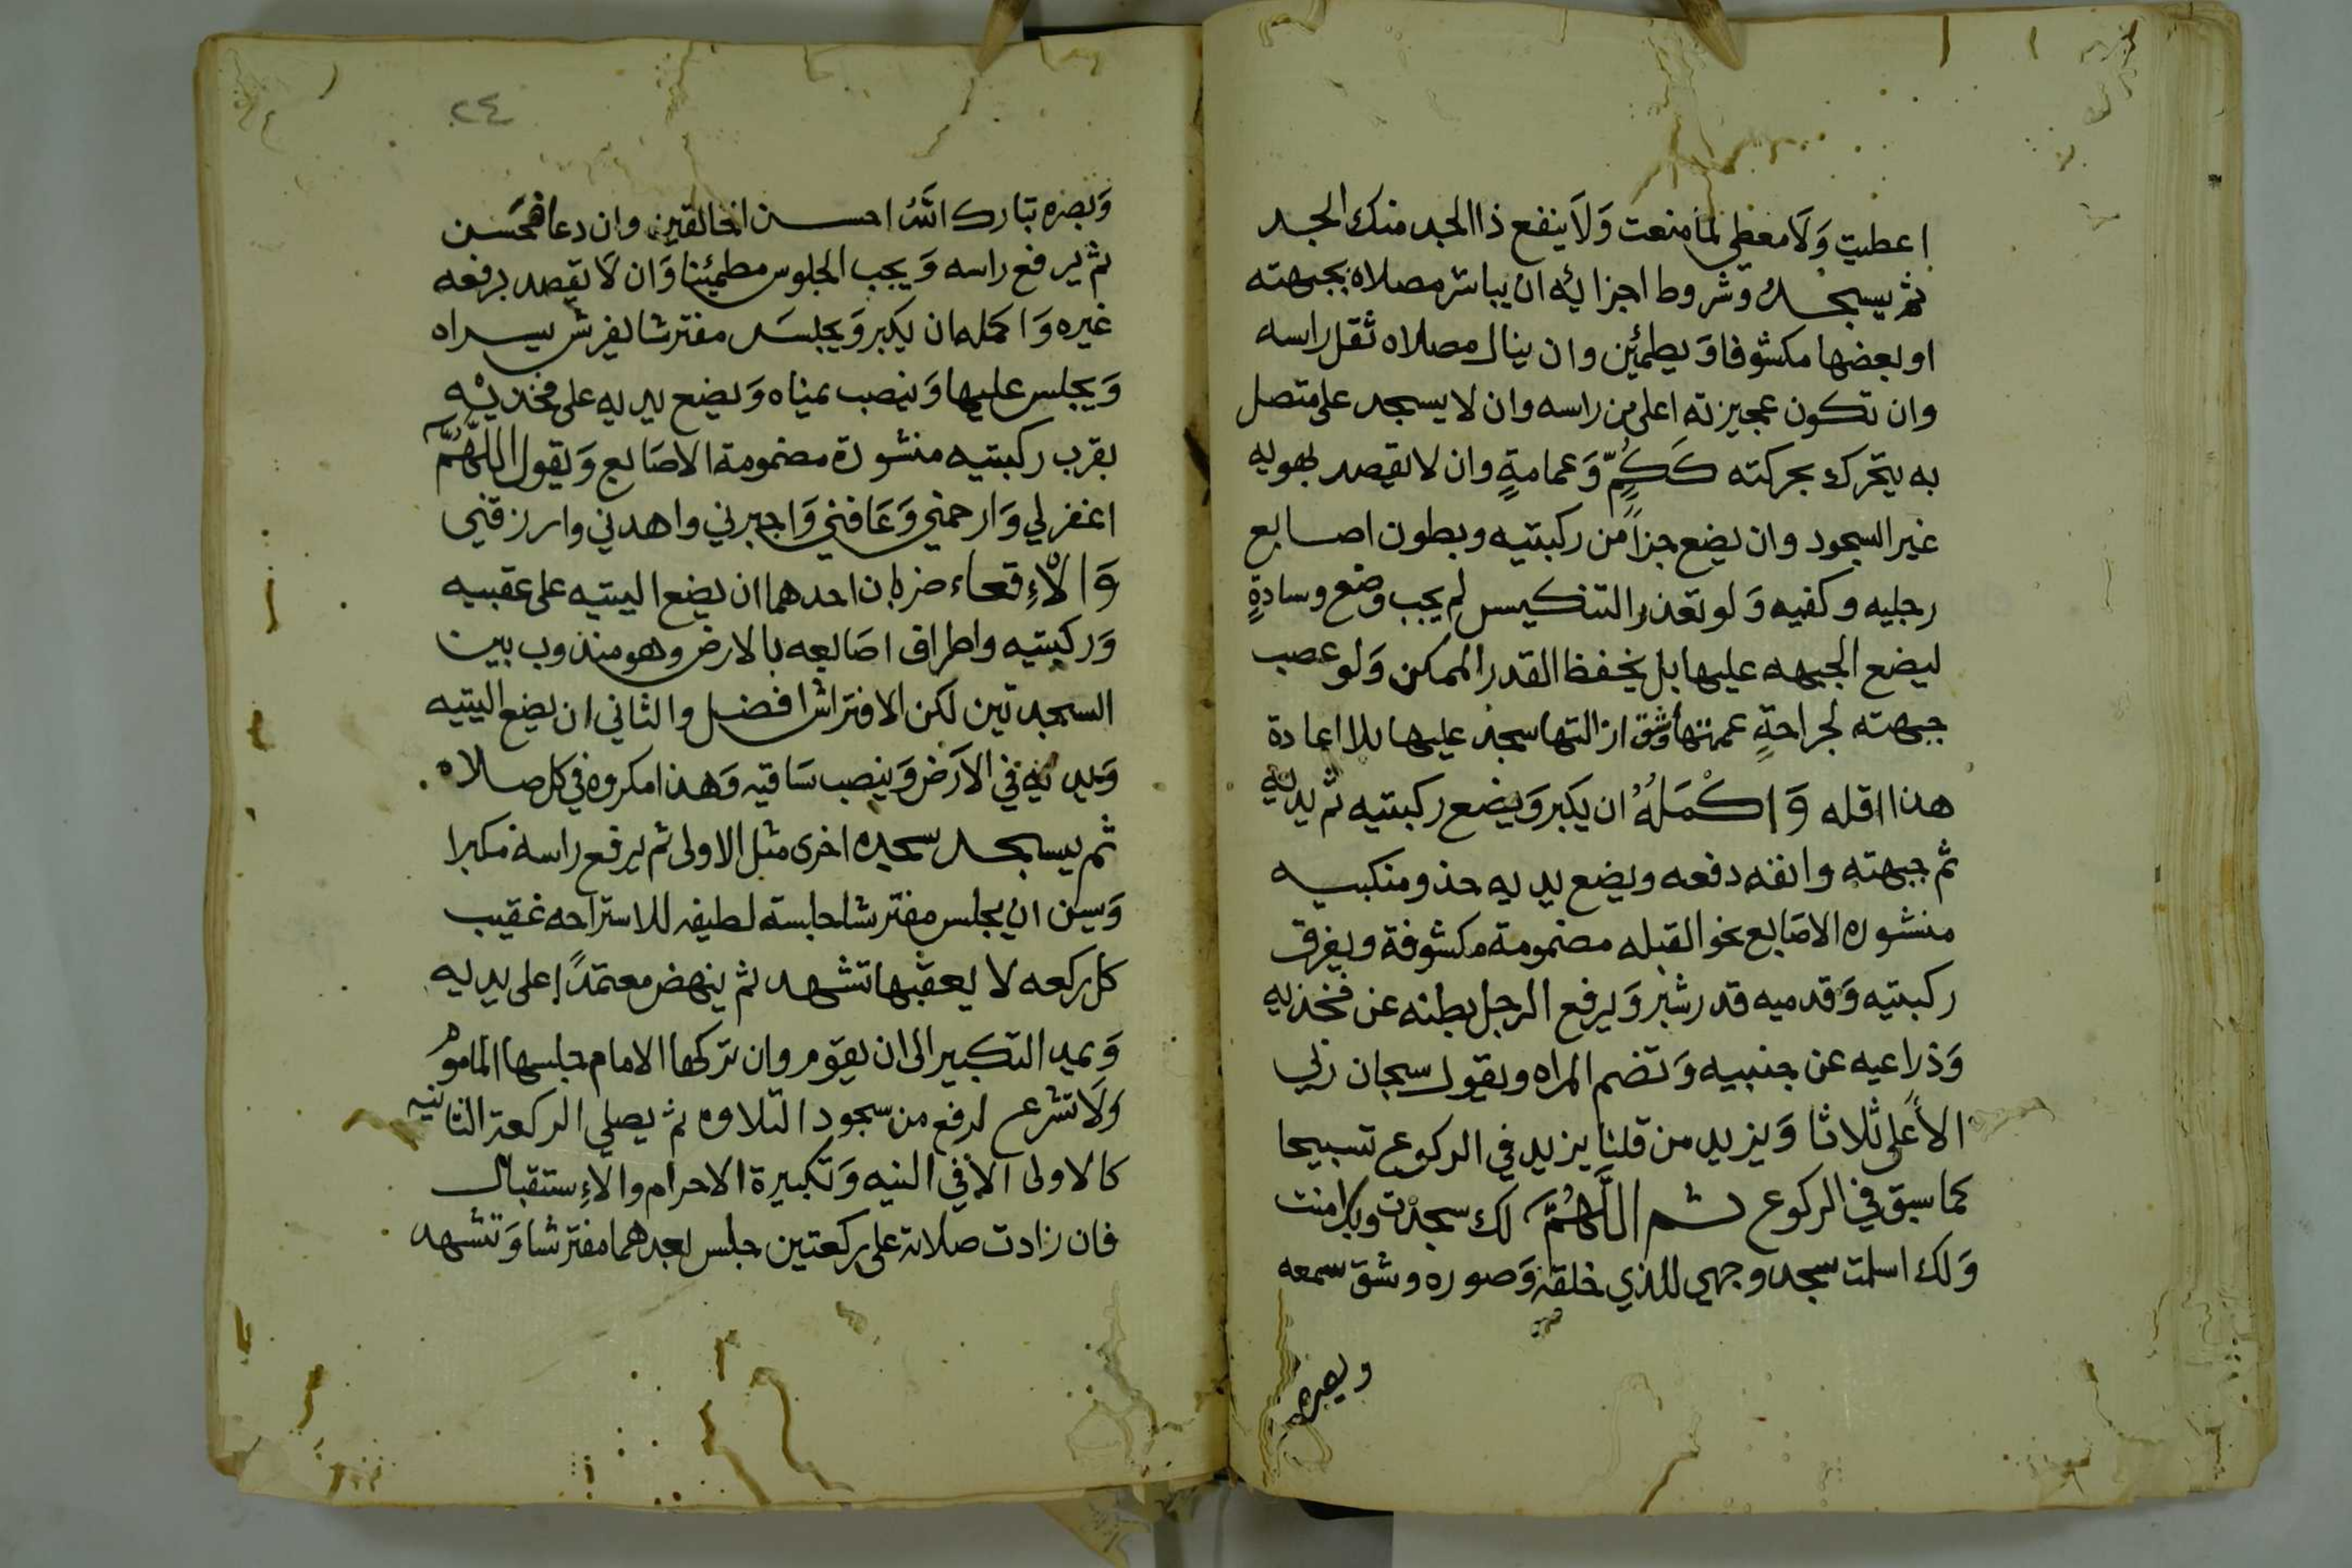 اعطيت وَلَا معطي لما منعت وَلَا ينفع ذا الجد منك الجد
ثم يسجد وشروط اجزايه ان يباشر مصلاه بجبهته
او بعضها مكشوفا وَيطمئن وان ينال مصلاه ثقل راسه
وان تكون عجيزته اعلى من راسه وان لا يسجد على متصل
به يتحرك بحركته كَكُمٍّ وَعمامةٍ وان لا يقصد بهويه
غير السجود وان يضع جزاً من ركبتيه وبطون اصابع
رجليه وكفيه وَلو تعذر التنكيس لم يجب وضع وسادةٍ
ليضع الجبهه عليها بل يخفظ القدر الممكن وَلو عصب
جبهته لجراحةٍ عمتها وشق ازالتها سجد عليها بلا اعادة
هذا اقله وَاكْمَلُهُ ان يكبر وَيضع ركبتيه ثم يديه
ثم جبهته وانفه دفعه ويضع يديه حذو منكبيه
منشوره الاصَابع نحو القبله مضمومة مكشوفة ويفرق
ركبتيه وَقدميه قدر شبر وَيرفع الرجل بطنه عن فخذيه
وَذراعيه عن جنبيه وَتضم المراه ويقول سبحان ربي
الأعلى ثلاثا وَيزيد من قلنا يزيد في الركوع تسبيحا
كما سبق في الركوع ثم اللَّهُمَّ لك سجدت وبك امنت
وَلك اسلمت سجد وجهي للذي خلقه وَصوره وشق سمعه
وبصره
٢٤
وَبصره تبارك اللهُ احسن الخالقين وان دعا فحَسن
ثم يرفع راسه وَيجب الجلوس مطمئنا وَان لَا يقصد برفعه
غيره وَاكمله ان يكبر وَيجلسَ مفترشا يفرش يسراه
وَيجلس عليها وَينصب يمناه وَيضع يديه على فخذيْه
بقرب ركبتيه منشورة مضمومة الاصَابع وَيقول اللَّهُمَّ
اغفر لي وَارحمني وَعَافني وَاجبرني واهدني وارزقني
وَالْاِقعاء ضربان احدهما ان يضع اليتيه على عقبيه
وَركبتيه واطراف اصَابعه بالارض وهو مندوب بين
السجدتين لكن الافتراش افضل والثاني ان يضع اليتيه
وَيديه في الاَرَض وَينصب سَاقيه وَهذا مكروه في كل صلاه
ثم يسجد سجده اخرى مثل الاولى ثم يرفع راسه مكبرا
وَيسن ان يجلس مفترشا جلسة لطيفه للاستراحه عقيب
كل ركعه لا يعقبها تشهد ثم ينهض معتمداً على يديه
وَيمد التكبير الى ان يقوم وان تركها الامام جلسها المامومُ
وَلَا تشرع لرفع من سجود التلاوه ثم يصلي الركعة الثانيه
كالاولى الا في النيه وَتكبيرة الاحرام والاِستقبال
فان زادت صلاته على ركعتين جلس بعدهما مفترشا وَتشهد